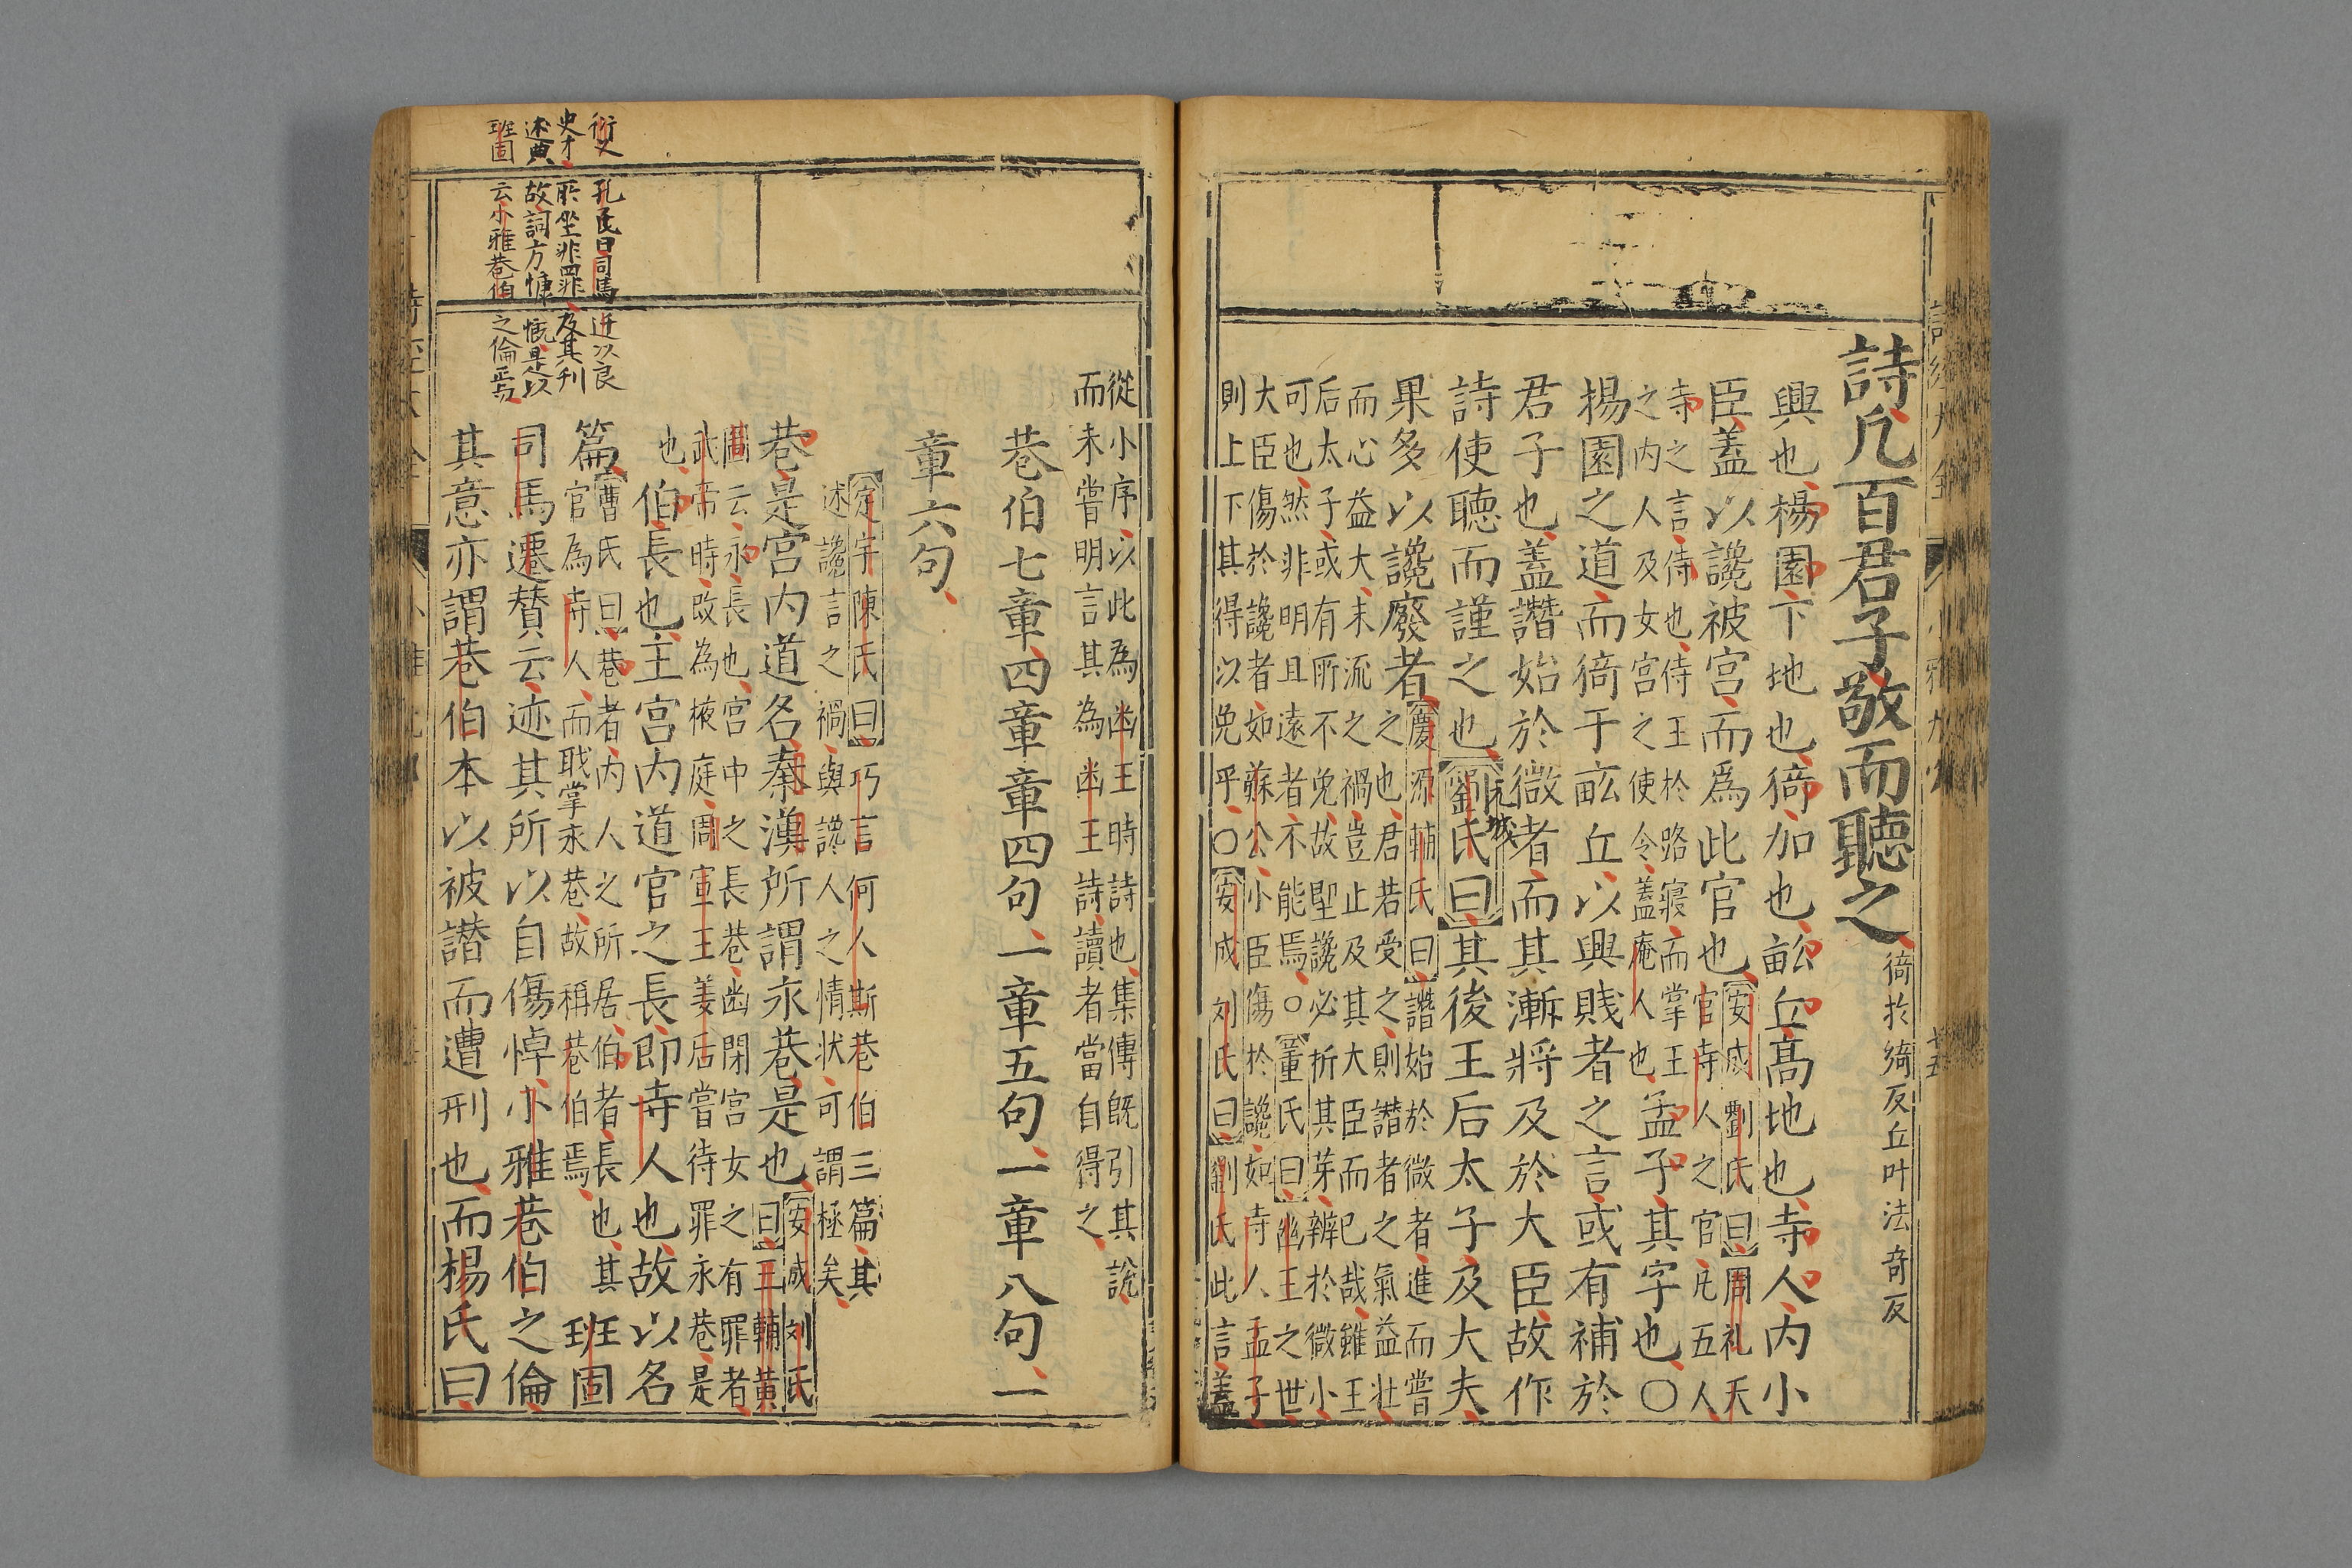 詩凡百君子敬而聽之
猗於綺反丘叶法奇反
興也楊園下地也猗加也畝丘髙地也寺人内小
臣蓋以讒被宫而爲此官也
安成劉氏曰周礼天
官寺人之官凡五人
寺之言侍也侍王於路寝而掌王
之内人及女宫之使令蓋奄人也
孟子其字也○
楊園之道而猗于畝丘以興賎者之言或有補於
君子也蓋譖始於微者而其漸將及於大臣故作
詩使聽而謹之也
元城
劉氏曰其後王后太子及大夫
果多以讒廢者
慶源輔氏曰譖始於微者進而嘗
之也君若受之則譖者之氣益壮
而心益大末流之禍豈止及其大臣而已哉雖王
后太子或有所不免故聖讒必折其芽辨於微小
可也然非明且遠者不能焉○董氏曰幽王之世
大臣傷於讒者如蘇公小臣傷於讒如寺人孟子
則上下其得以免乎○安成刘氏曰劉氏此言蓋
詩經大全
小雅九
從小序以此為幽王時詩也集傳旣引其說
而未嘗明言其為幽王詩讀者當自得之
巷伯七章四章章四句一章五句一章八句一
章六句
定宇陳氏曰巧言何人斯巷伯三篇其
述讒言之禍與讒人之情状可謂極矣
巷是宫内道名秦漢所謂永巷是也
安成刘氏
曰三輔黄
圖云永長也宫中之長巷幽閉宫女之有罪者
武帝時改為掖庭周宣王姜后嘗待罪永巷是
也
伯長也主宫内道官之長即寺人也故以名
篇
曹氏曰巷者内人之所居伯者長也其
官為寺人而職掌永巷故稱巷伯焉
班固
司馬遷賛云迹其所以自傷悼小雅巷伯之倫
其意亦謂巷伯本以被譖而遭刑也而楊氏曰
衍文
孔氏曰司馬迁以良
史才所坐非罪及其刊
述典故詞方慷慨是以
班固云小雅巷伯之倫焉